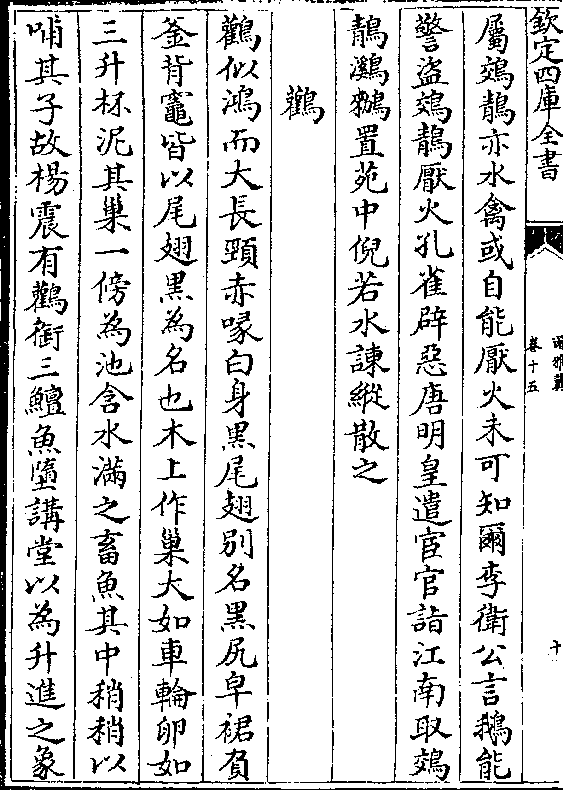 欽定四庫全書
爾雅翼
卷十五
十
屬鵁鶄亦水禽或自能厭火未可知爾李衛公言鵝能
警盜鵁鶄厭火孔雀辟惡唐明皇遣宦官詣江南取鵁
鶄鸂鶒置苑中倪若水諫縱散之
鸛
鸛似鴻而大長頸赤喙白身黒尾翅别名黒尻皁裙負
釜背竈皆以尾翅黒為名也木上作巢大如車輪卵如
三升杯泥其巢一傍為池含水滿之畜魚其中稍稍以
哺其子故楊震有鸛銜三鱣魚墮講堂以為升進之象